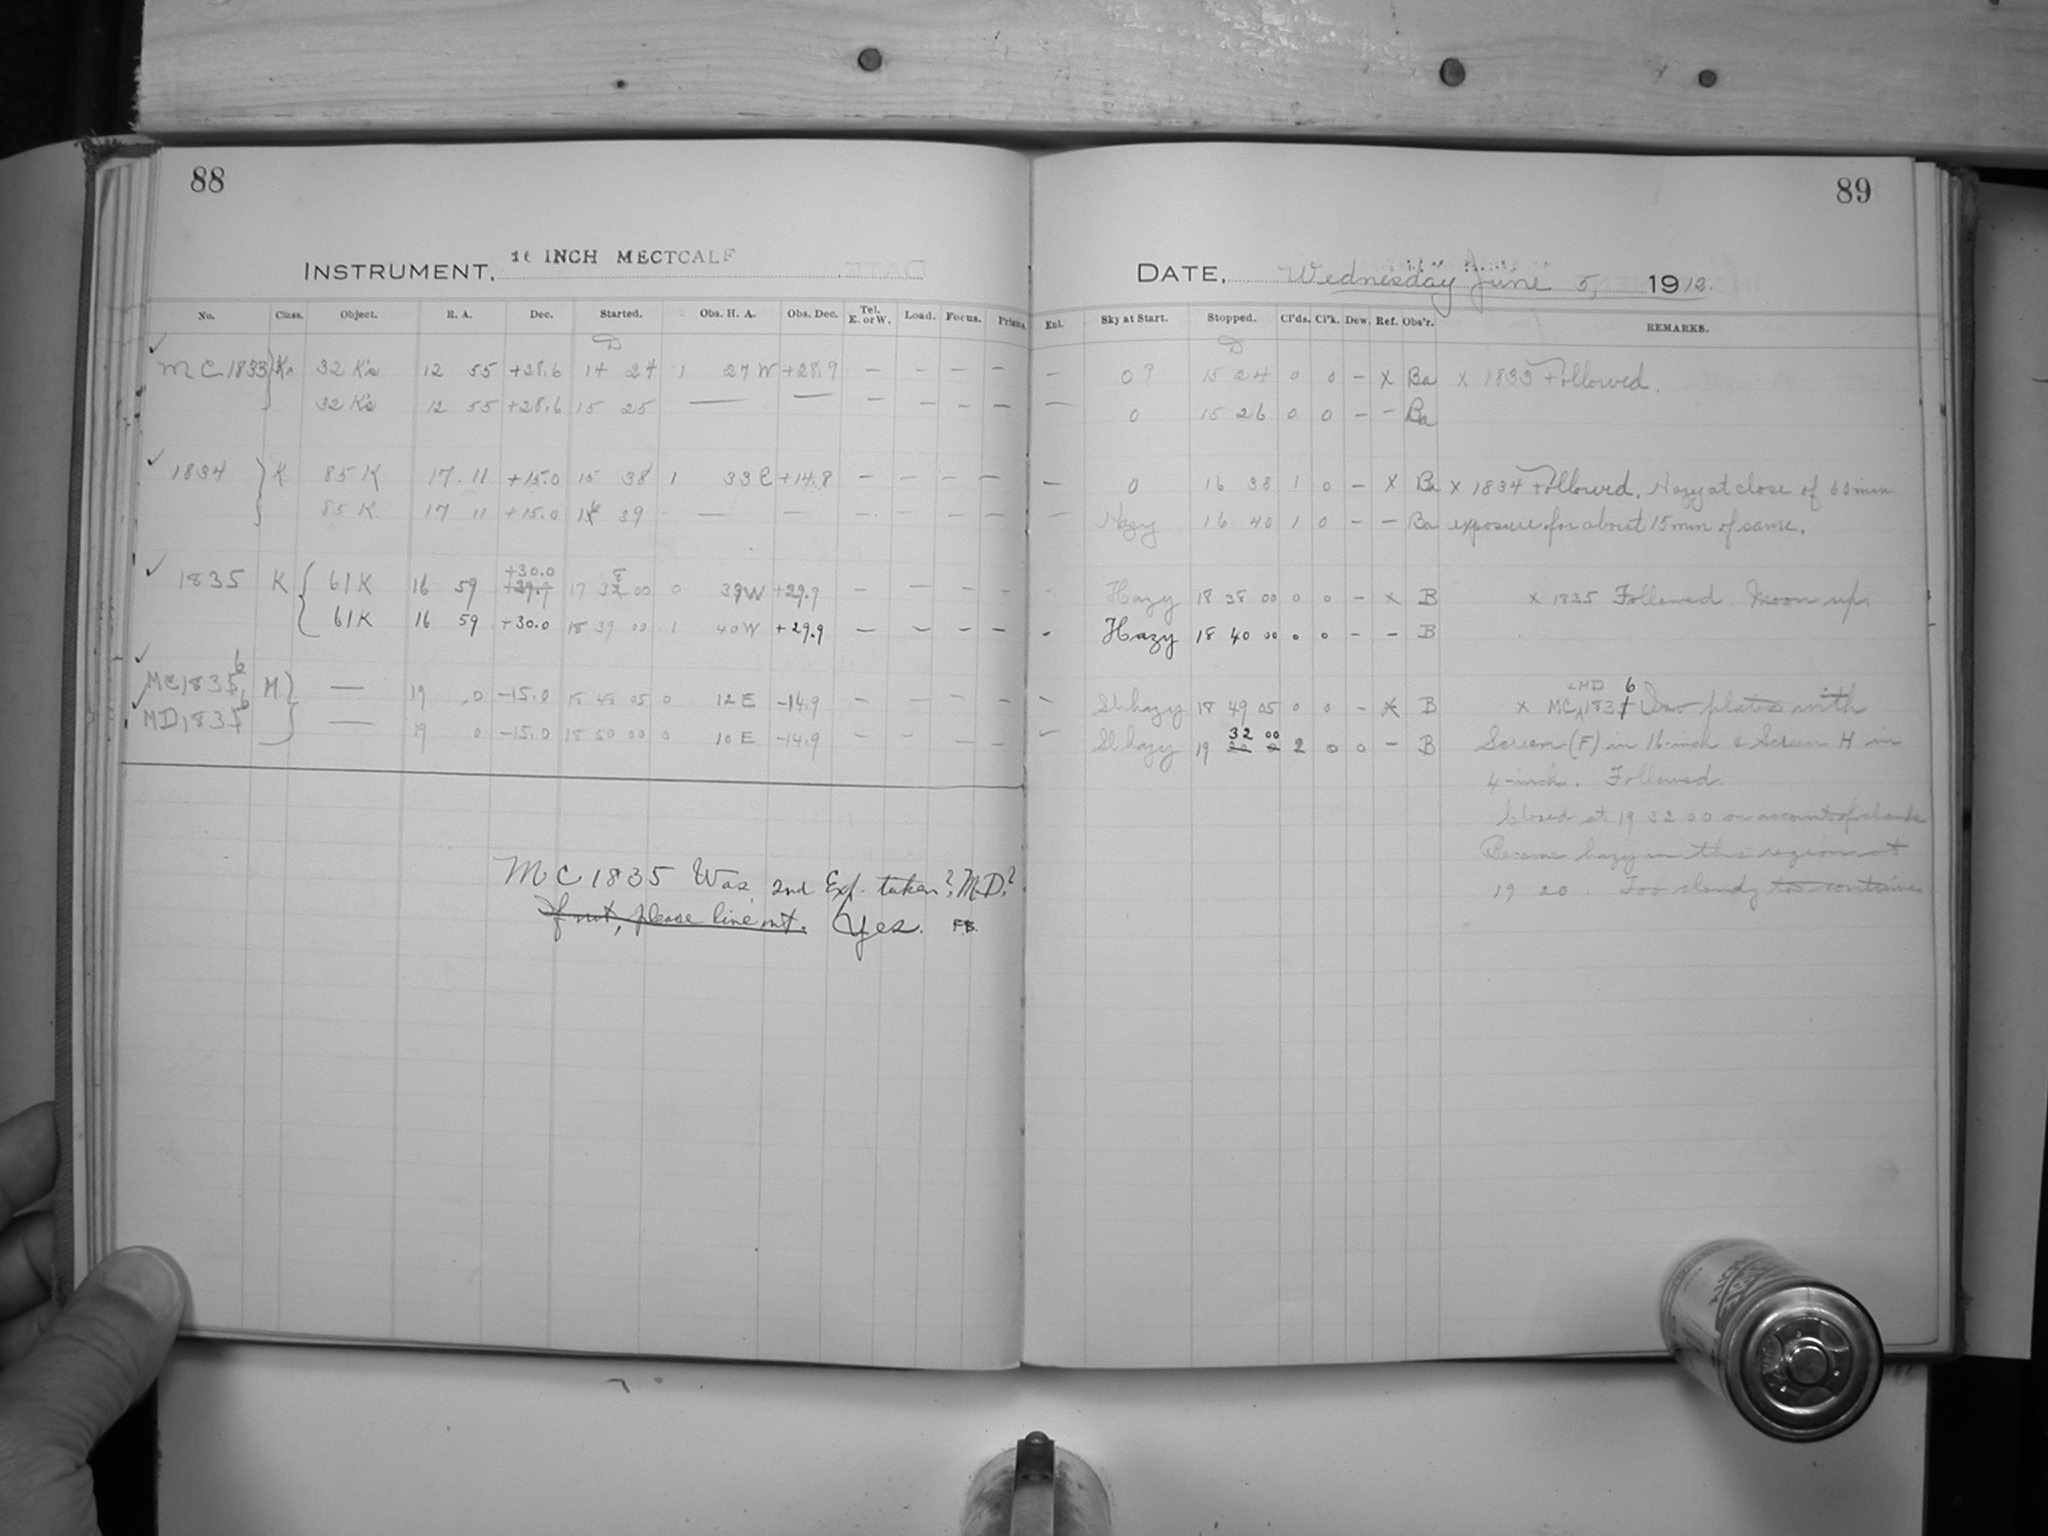 88
INSTRUMENT, 16 INCH MECTCALF
No. Class. Object. R. A. Dec. Started. Obs. H. A. Obs. Dec. Tel. E. or W. Load. Focus. Prism.
MC 1833 } K 32 K's 12 55 +28.6 14 24 1 27 W +28.9 — — — —
32 K's 12 55 +28.6 15 25 — — — — — —
1834 } K 85 K 17 11 +15.0 15 38 1 33 E +14.8 — — — —
85 K 17 11 +15.0 16 39 — — — — — —
1835 K { 61 K 16 59 +30.0 +29.9 17 38 00 0 39 W +29.9 — — — —
61 K 16 59 +30.0 18 39 00 1 40 W +29.9 — — — —
MC 1836 H } — 19 0 -15.0 18 48 05 0 12 E -14.9 — — — —
MD 1836 — 19 0 -15.0 18 50 00 0 10 E -14.9 — — — —
MC 1835 Was 2nd Exp. taken? MD?
If not, please line out. Yes. FB.
89
DATE, Wednesday June 5, 1912.
Enl. Sky at Start. Stopped. Cl'ds. Cl'k. Dew. Ref. Obs'r. REMARKS.
— 0? 15 24 0 0 — X Ba X 1833 Followed.
— 0 15 26 0 0 — — Ba
— 0 16 38 1 0 — X Ba X 1834 Followed. Hazy at close of 60 min
— Hazy 16 40 1 0 — — Ba exposure for about 15 min of same.
Hazy 18 38 00 0 0 — X B X 1835 Followed. Moon up.
- Hazy 18 40 00 0 0 — — B
— Sl. hazy 18 49 05 0 0 — X B X MC, 1836 & MD Two plates with
— Sl. hazy 19 32 00 2 0 0 — B Screen (F) in 16-inch & Screen H in
4-inch. Followed.
Closed at 19 32 00 on account of clouds
Became hazy in this region at
19 20. Too cloudy to continue